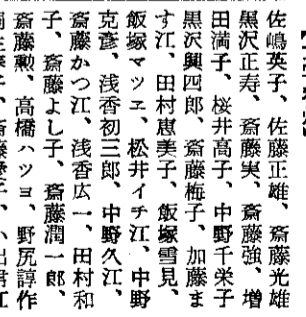 佐嶋英子、佐藤正雄、斎藤光雄
黒沢正寿、斎藤実、斎藤強、増
田満子、桜井高子、中野千栄子
黒沢興四郎、斎藤梅子、加藤ま
す江、田村恵美子、飯塚雪見、
飯塚マツエ、松井イチ江、中野
克彦、浅香初三郎、中野久江、
斎藤かつ江、浅香広一、田村和
子、斎藤よし子、斎藤潤一郎、
斎藤勲、高橋ハツヨ、野尻諄作